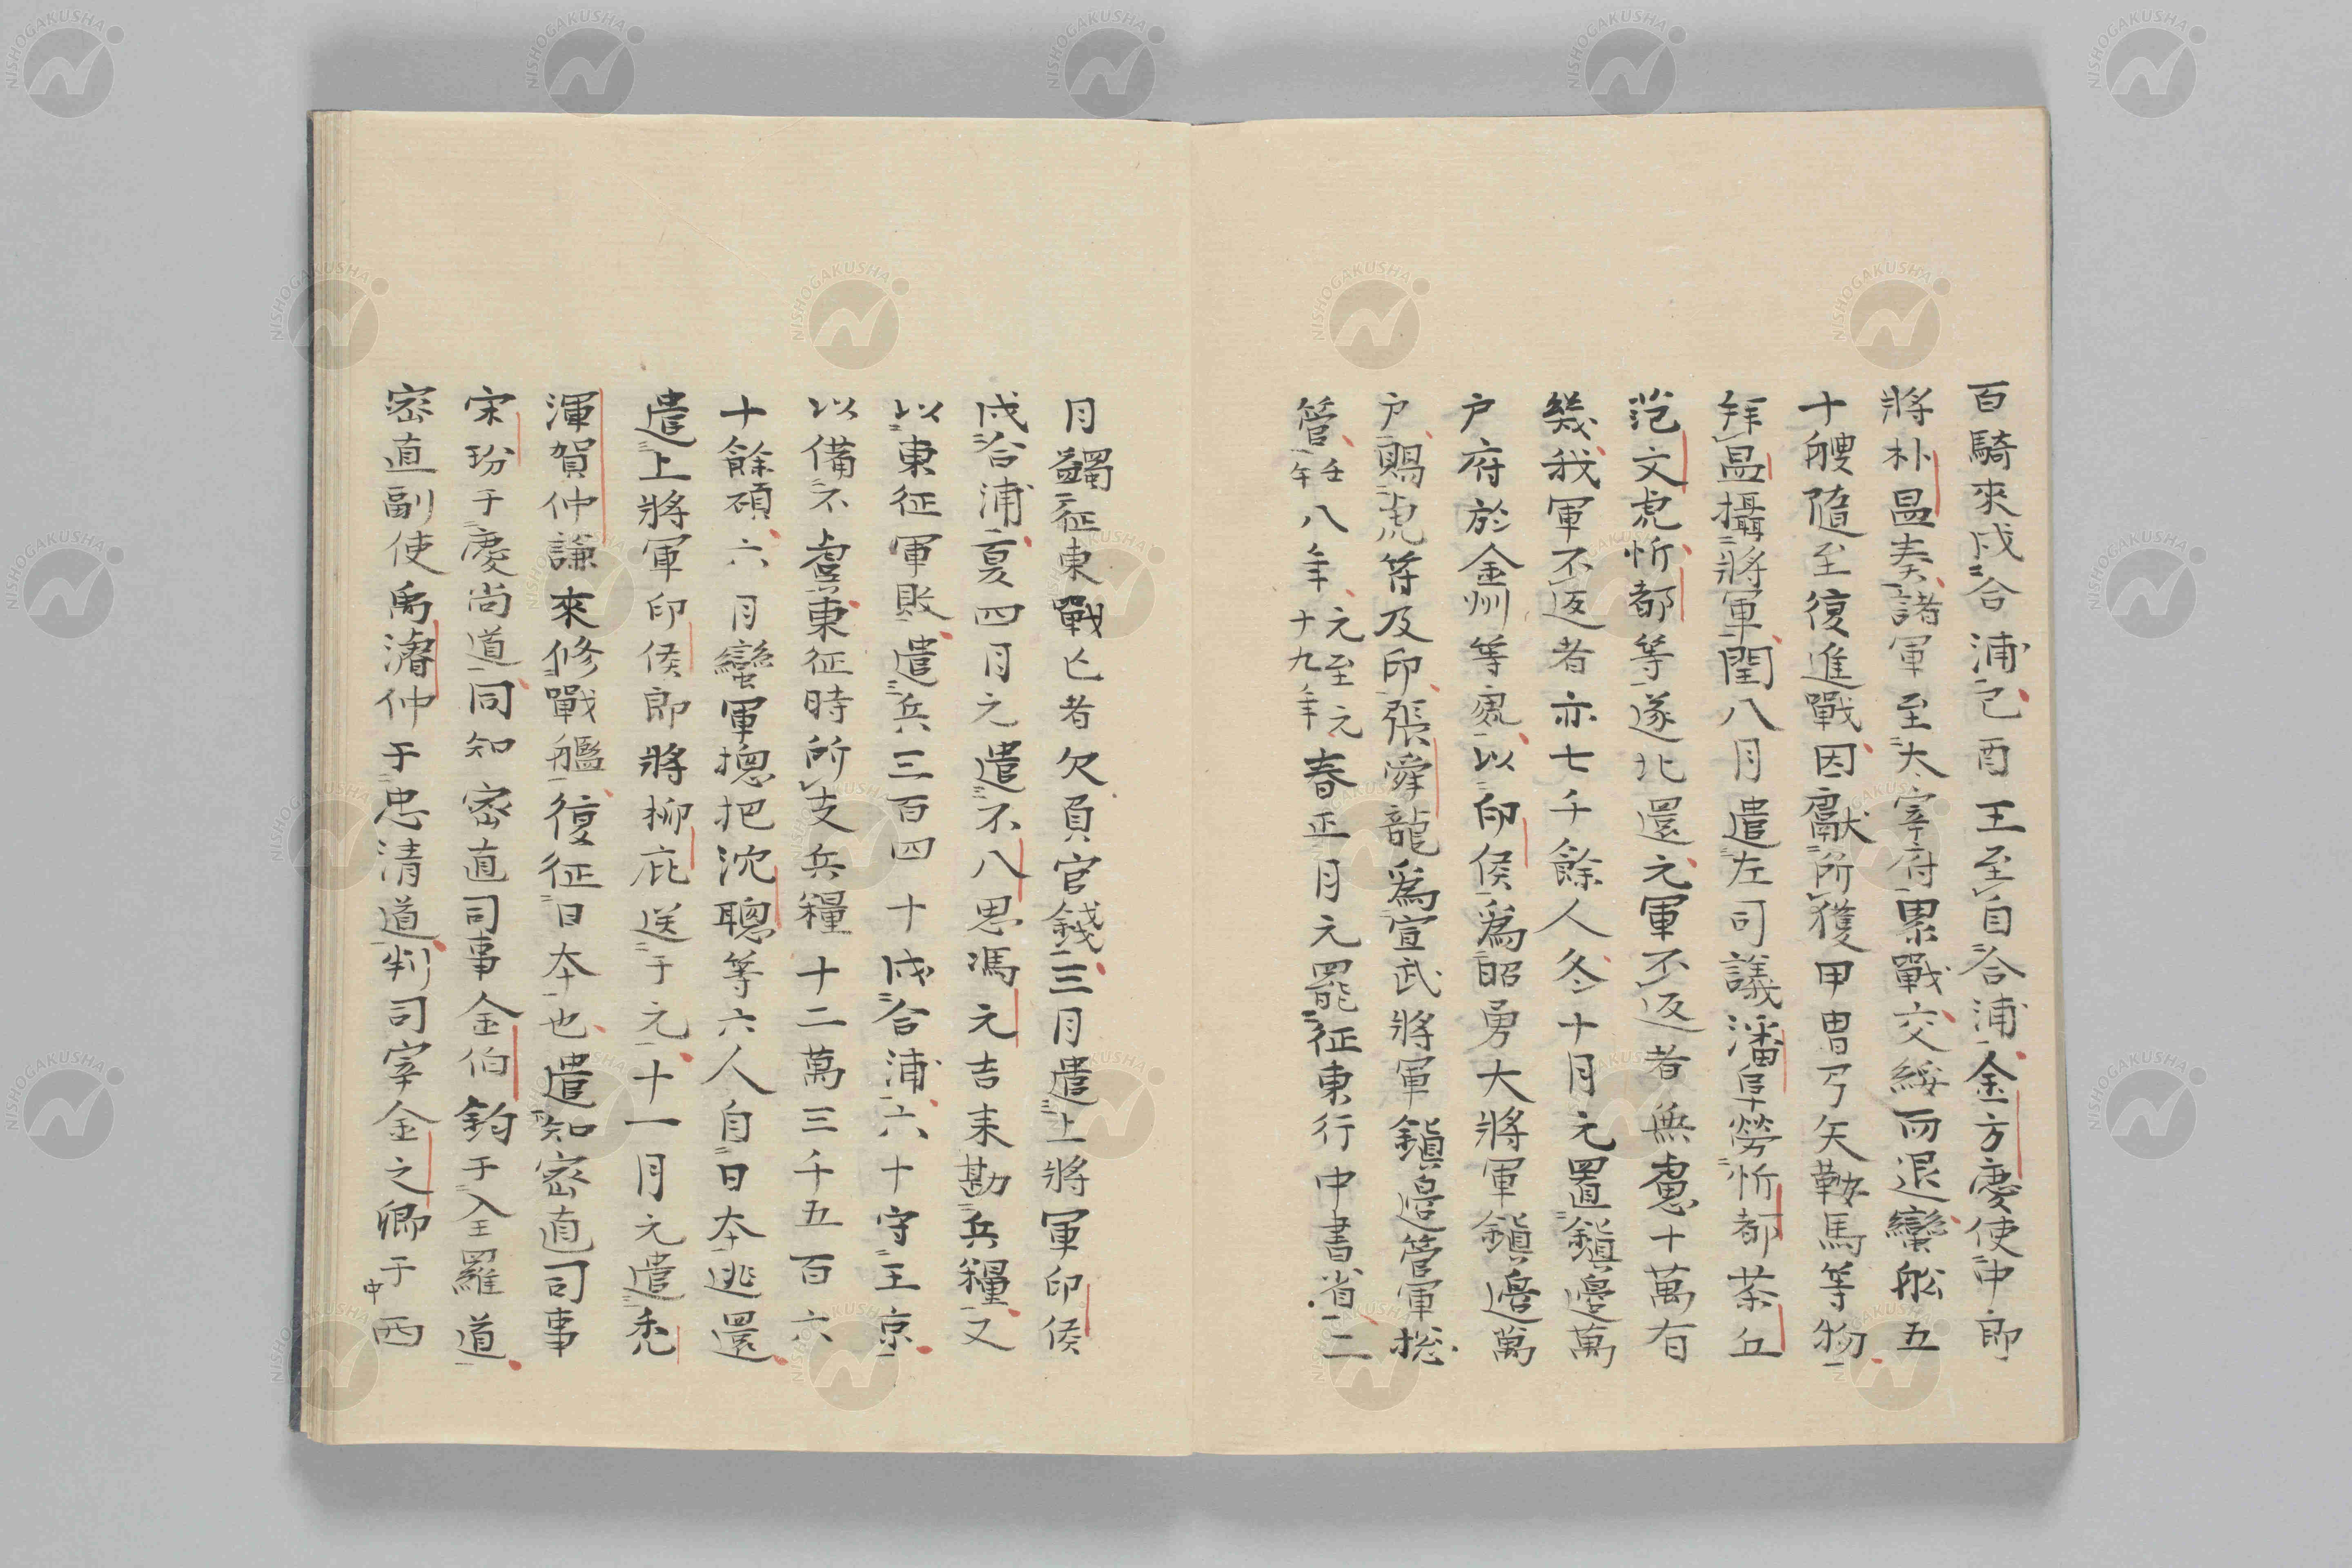 百騎來戍合浦己酉王至自合浦金方慶使中郎
將朴昷奏諸軍至太宰府累戰交綏而退蠻舩五
十艘隨至復進戰因獻所獲甲胄弓矢鞍馬等物
拜昷攝將軍閏八月遣左司議潘阜勞忻都茶丘
范文虎忻都等遂北還元軍不返者無慮十萬有
幾我軍不返者亦七千餘人冬十月元置鎭邊萬
戶府於金州等處以印侯爲昭勇大將軍鎭邊萬
戶賜虎符及印張舜龍爲宣武將軍鎭邊管軍摠
管壬午八年元至元十九年春正月元罷征東行中書省二
月蠲征東戰亡者欠負官錢三月遣上將軍印侯
戍合浦夏四月元遣不八思馮元吉来勘兵糧又
以東征軍敗遣兵三百四十戍合浦六十守王京
以備不虞東征時所支兵糧十二萬三千五百六
十餘碩六月蠻軍摠把沈聰等六人自日本逃還
遣上將軍印侯郎將柳庇送于元十一月元遣禿
渾賀仲謙來修戰艦復征日本也遣知密直司事
宋玢于慶尚道同知密直司事金伯鈞于全羅道
密直副使禹濬仲于忠清道判司宰金之卿于西
中
NISHOGAKUSHA